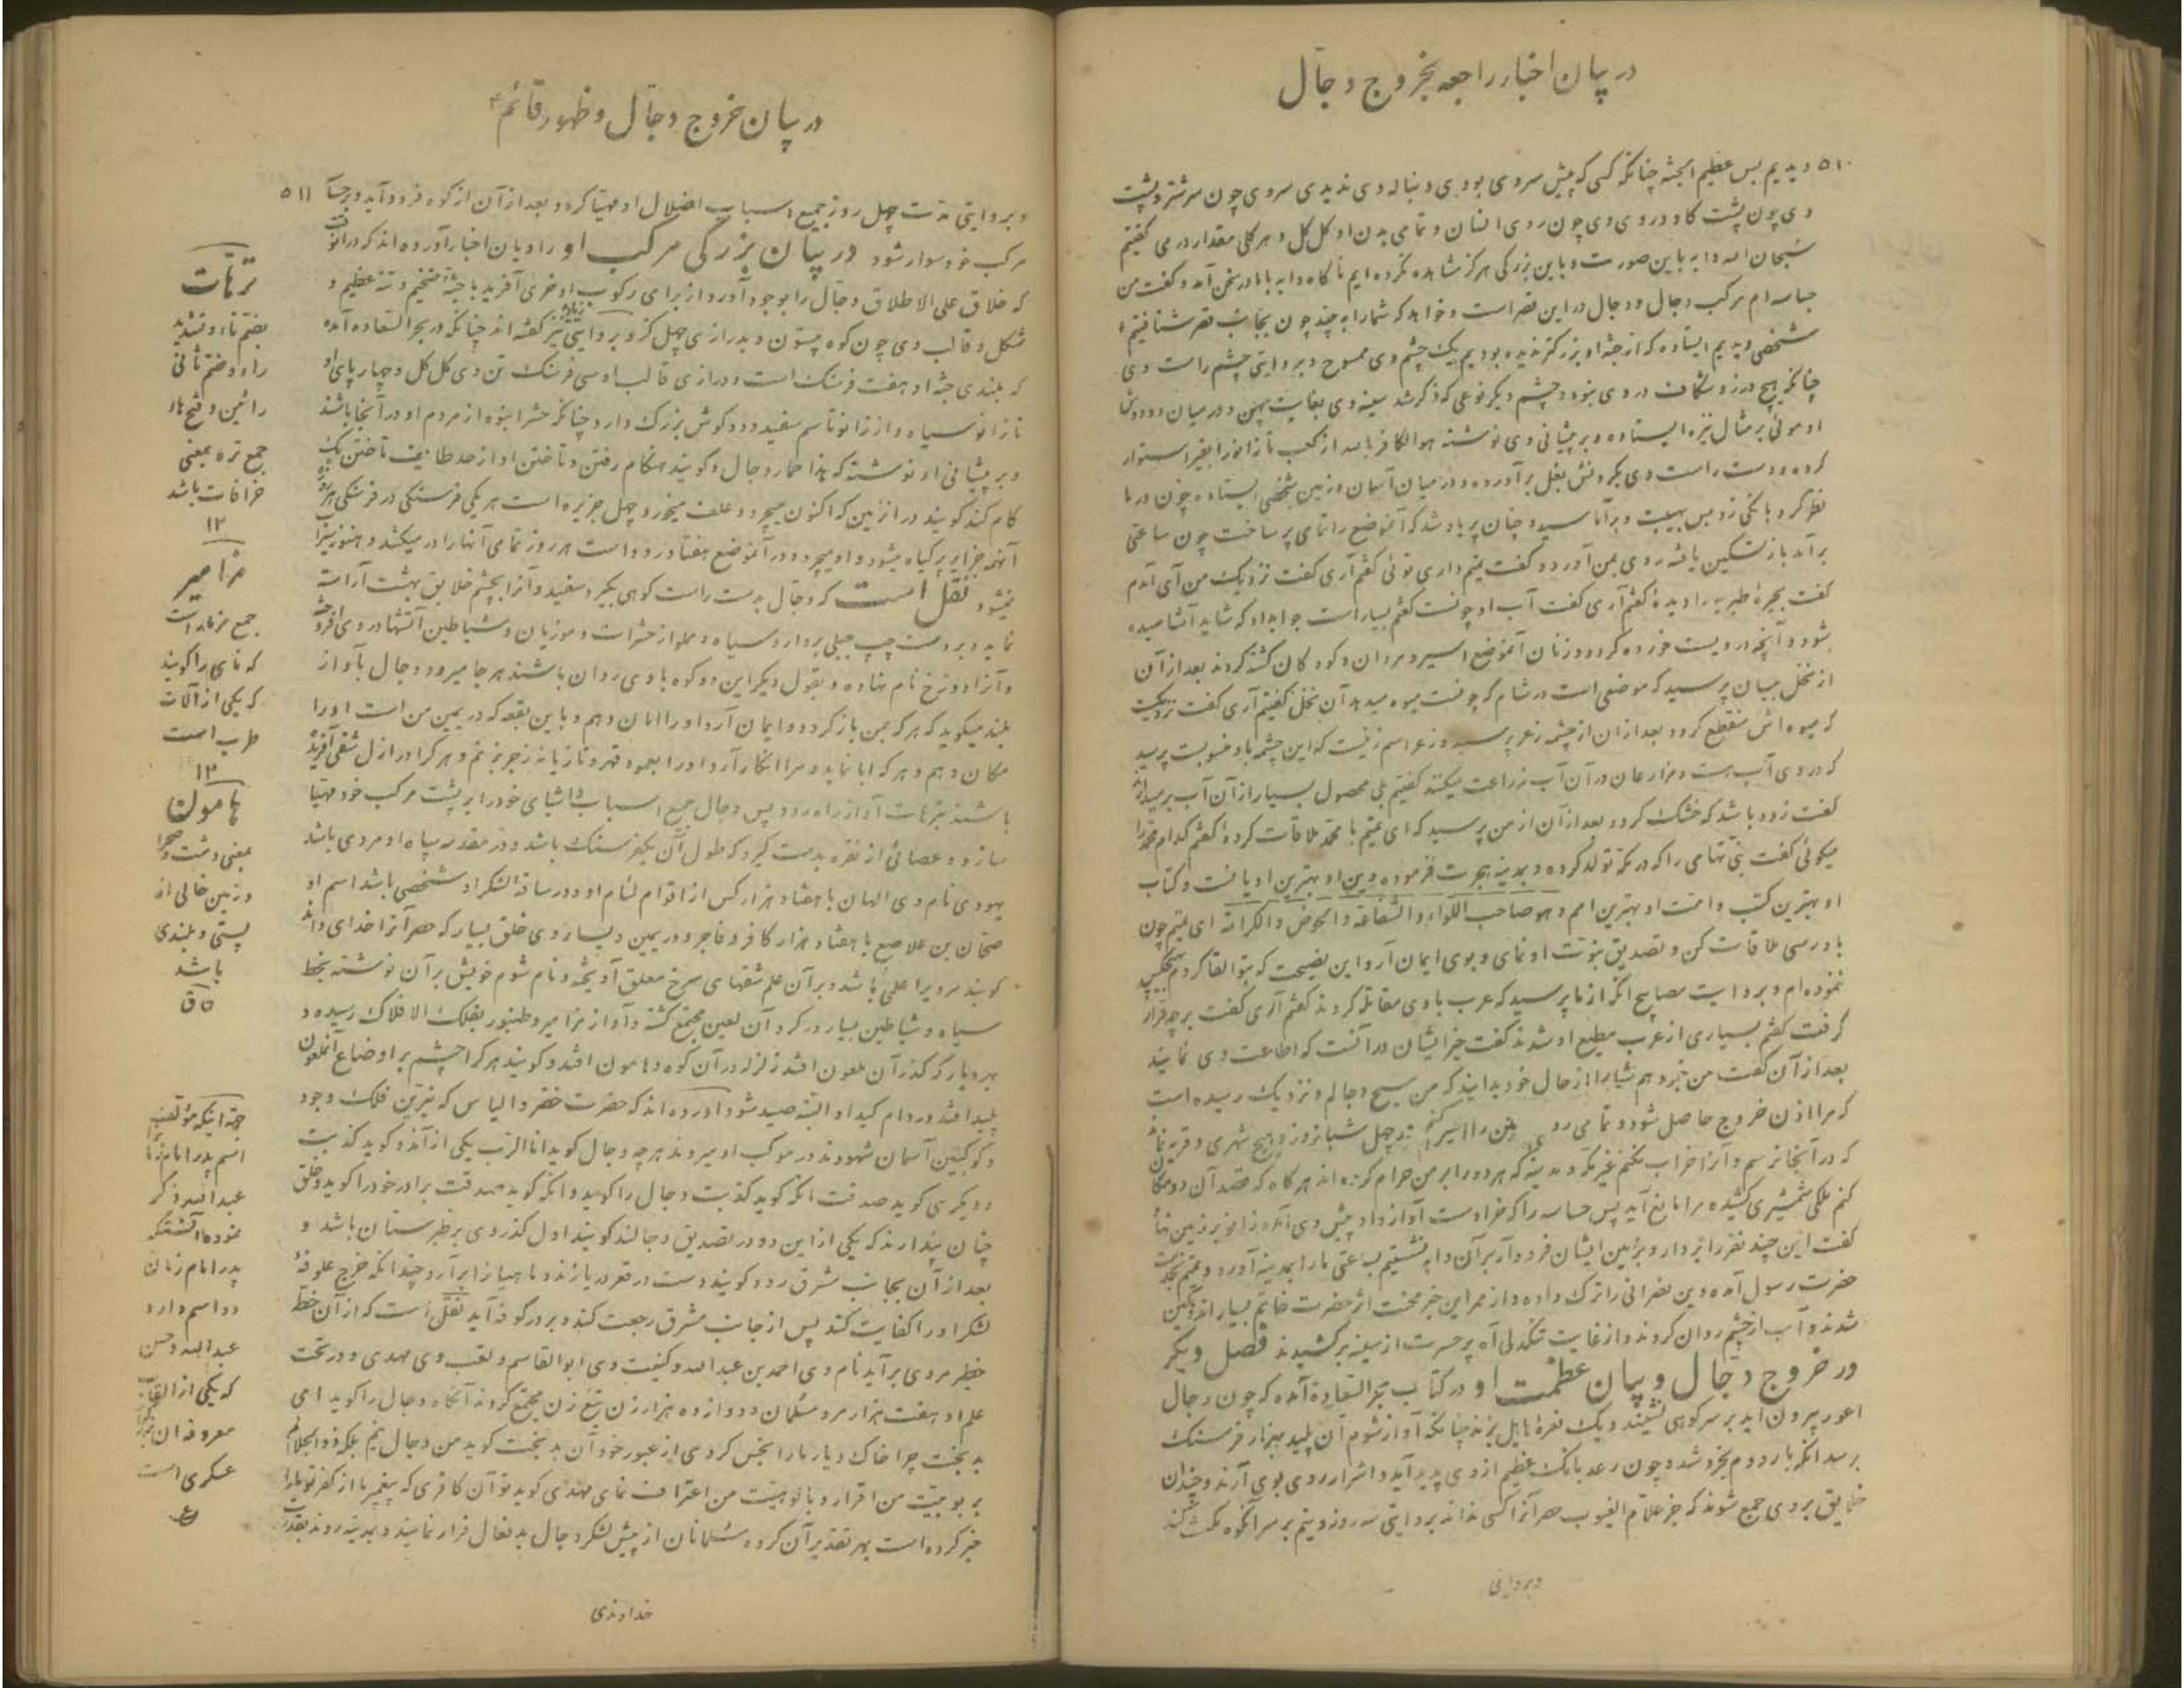 در بیان اخبار راجعه بخروج دجال
۵۱۰ دیدیم بس عظیم الجثه چنانکه کسی که پیش سر وی بودی دنباله وی ندیدی سر وی چون سر شتر و پشت
وی چون پشت گاو و روی وی چون روی انسان و تمامی بدن او کل کل و هر کلی مقدار درمی گفتیم
سبحان الله دابه باین صورت و باین بزرگی هرگز مشاهده نکرده ایم ناگاه دابه باما در سخن آمد و گفت من
جساسه ام مرکب دجال و دجال در این قصر است و خواهد که شما را به بیند چون بجانب قصر شتافتیم
شخصی دیدیم ایستاده که از جثه او بزرکتر ندیده بودیم یک چشم وی ممسوح و بروایتی چشم راست وی
چنانکه هیچ درز و شکاف در وی نبود و چشم دیگر نوعی که ذکر شد سینه وی بغایت پهن و در میان دو دوش
او موئی بر مثال نیزه ایستاده و بر پیشانی وی نوشته هو الکافر بالله از کعب تا زانو را بقیر استوار
کرده و دست راست وی بگردنش بغل برآورده و در میان آسمان و زمین شخصی ایستاده چون در ما
نظر کرد بانگی زد بس بهیبت و برآماسید و چنان پرباد شد که آنموضع را تمامی پر ساخت چون ساعتی
برآمد باز تسکین یافته روی بمن آورد و گفت تمیم داری توئی گفتم آری گفت نزدیک من آی آمدم
گفت بحیره طبریه را دیده گفتم آری گفت آب او چونست گفتم بسیار است جواب داد که شاید آشامیده
شود و آنچه در ویست خورده گردد و زنان آنموضع اسیر و مردان و کودکان کشته گردند بعد از آن
از نخل بیسان پرسید که موضعی است در شام که چونست میوه میدهد آن نخل گفتیم آری گفت نزدیکست
که میوه اش منقطع گردد بعد از ان از چشمه زغر پرسید و زغر اسم زنیست که این چشمه باو منسوبست پرسید
که در وی آب هست و مزارعان در آن آب زراعت میکنند گفتیم بلی محصول بسیار از آن آب برمیدارند
گفت زود باشد که خشک گردد بعد از آن از من پرسید که ای تمیم با محمد ملاقات کرده گفتم کدام محمد را
میگوئی گفت نبی تهامی را که در مکه تولد کرده و بمدینه هجرت فرموده دین او بهترین ادیانست و کتاب
او بهترین کتب و امت او بهترین امم و هو صاحب اللواء و الشفاعة و الحوض و الکرامة ای تمیم چون
باو رسی ملاقات کن و تصدیق نبوت او نمای و بوی ایمان آر و این نصیحت که بتو القا کردم بهیچکس
ننموده ام و بروایت مصابیح آنکه از ما پرسید که عرب باوی مقاتله کردند گفتم آری گفت بر چه قرار
گرفت گفتم بسیاری از عرب مطیع او شدند گفت خیر ایشان در آنست که اطاعت وی نمایند
بعد از آن گفت من خبر دهم شما را از حال خود بدانید که من مسیح دجالم و نزدیک رسیده است
که مرا اذن خروج حاصل شود و تمامی روی زمین را سیر کنم در چهل شبانروز و هیچ شهری و قریه نماند
که در آنجا نرسم و آنرا خراب نکنم غیر مکه و مدینه که هر دو را بر من حرام کرده اند هر گاه که قصد آن دو مکان
کنم ملکی شمشیری کشیده مرا مانع آید پس جساسه را که خر اوست آواز داد پیش وی آمده زانو بر زمین نهاد
گفت این چند نفر را بردار و بزمین ایشان فرود آر بر آن دابه نشستیم بساعتی ما را بمدینه آورد و تمیم بخدمت
حضرت رسول آمده دین نصرانی را ترک داده و از ممر این خبر محنت اثر حضرت خاتم بسیار اندوهگین
شدند و آب از چشم روان کردند و از غایت تنگدلی آه پر حسرت از سینه برکشیدند فصل دیگر
در خروج دجال و بیان عظمت او در کتاب بحر السعاده آمده که چون دجال
اعور بیرون آید بر سر کوهی نشیند و یک نعره هایل بزند چنانکه آواز شوم آن پلید بهزار فرسنگ
برسد آنکه بار دوم بخروشد و چون رعد بانگ عظیم از وی پدید آید و اشرار روی بوی آرند و چندان
خلایق بر وی جمع شوند که جز علام الغیوب حصر آنرا کسی نداند بروایتی سه روز و نیم بر سر آنکوه مکث کند
وبروایتی
در بیان خروج دجال و ظهور قائم ع
و بروایتی مدت چهل روز جمیع اسباب اضلال او مهیا گردد بعد از آن از کوه فرود آید و بر مرکب ۵۱۱
مرکب خود سوار شود در بیان بزرگی مرکب او راویان اخبار آورده اند که در آنوقت
که خلاق علی الاطلاق دجال را بوجود آورد از برای رکوب او خری آفرید با جثه ضخیم و تنه عظیم و
شکل و قالب وی چون کوه بیستون و بدرازی چهل گز و بروایتی نیز گفته اند چنانکه در بحر السعاده آمده
که بلندی جثه او هفت فرسنگ است و درازی قالب او سی فرسنگ تن وی کل کل و چهار پای او
تا زانو سیاه و از زانو تا سم سفید و دو گوش بزرگ دارد چنانکه حشر انبوه از مردم او در آنجا باشند
و بر پیشانی او نوشته که هذا حمار دجال و گویند هنگام رفتن و تاختن او از حد طائف تاختن یک
گام کند گویند در انزمین که اکنون میچرد و علف میخورد چهل جزیره است هر یکی فرسنگی در فرسنگی هر روز
آنهمه جزایر پر گیاه میشود و او میچرد و در آنموضع هفتاد رود است هر روز تمامی آنها را در میکشد و هنوز سیراب
نمیشود نقل است که دجال بدست راست کوهی بگیرد سفید و آنرا بچشم خلایق بهشت آراسته
نماید و بر دست چپ جبلی بردارد سیاه و مملو از حشرات و موزیان و شیاطین آتشها در وی افروخته
و آنرا دوزخ نام نهاده و بقول دیگر این دو کوه باوی روان باشند هر جا میرود و دجال بآواز
بلند میگوید که هر که بمن باز گردد و ایمان آرد او را امان دهم و باین بقعه که در یمین من است او را
مکان دهم و هر که ابا نماید و مرا انکار آرد او را بعمود قهر و تازیانه زجر بزنم و هر که را در ازل شقی آفریده
باشند بترهات آواز راه رود پس دجال جمیع اسباب و اشیای خود را بر پشت مرکب خود مهیا
سازد و عصائی از نقره بدست گیرد که طول آن یکفرسنگ باشد و در مقدمه سپاه او مردی باشد
یهودی نام وی الهان با هفتاد هزار کس از اقوام لئام او و در ساقه لشکر او شخصی باشد اسم او
ضحان بن علاصع با هفتاد هزار کافر و فاجر و در یمین و یسار وی خلق بسیار که حصر آنرا خدای داند
گویند مر ویرا علمی باشد و بر آن علم شقهای سرخ معلق آویخته و نام شوم خویش بر آن نوشته بخط
سیاه و شیاطین بسیار در گرد آن لعین مجتمع گشته و آواز مزامیر و طنبور بفلک الافلاک رسیده و
بهر دیار که گذر آن ملعون افتد زلزله در آن کوه و هامون افتد و گویند هر که را چشم بر اوضاع آنملعون
پلید افتد در دام کید او البته صید شود آورده اند که حضرت خضر و الیاس که نیّرین فلک وجود
و کوکبین آسمان شهودند در موکب او میروند هر چه دجال گوید انا الرب یکی از آندو گوید کذبت
و دیگری گوید صدقت آنکه گوید کذبت دجال را گوید و آنکه گوید صدقت برادر خود را گوید و خلق
چنان پندارند که یکی از این دو در تصدیق دجالند گویند اول گذر وی بر طبرستان باشد و
بعد از آن بجانب مشرق رود و گویند دست در قعر دریا زند و ماهیان را برآرد چندانکه خرج علوفه
لشکر او را کفایت کند پس از جانب مشرق رجعت کند و بر در کوفه آید نقل است که از آن خطه
خطیر مردی برآید نام وی احمد بن عبدالله و کنیت وی ابوالقاسم و لقب وی مهدی و در تحت
علم او هفت هزار مرد مسلمان و دوازده هزار زن تیغ زن مجتمع گردند آنگاه دجال را گوید ای
بدبخت چرا خاک دیار ما را نجس کردی از عبور خود آن بدبخت گوید من دجال نیم بلکه ذوالجلالم
بربوبیت من اقرار و بالوهیت من اعتراف نمای مهدی گوید تو آن کافری که پیغمبر ما از کفر تو ما را
خبر کرده است بهر تقدیر آن گروه مسلمانان از پیش لشکر دجال بدفعال فرار نمایند و بمدینه روند بقدرت
خداوندی
ترهات
بضم تاء و تشدید
راء و ضم ثانی
رائین و فتح هاء
جمع تره بمعنی
خرافات باشد
۱۲
مزامیر
جمع مزمار است
که نای را گویند
که یکی از آلات
طرب است
۱۲
هامون
بمعنی دشت و صحرا
و زمین خالی از
پستی و بلندی
باشد
ق
جهة اینکه مؤلف
اسم پدر امام زمانرا
عبدالله ذکر
نموده آنستکه
پدر امام زمان
دو اسم دارد
عبدالله و حسن
که یکی از القاب
معروفه ان
عسکری است